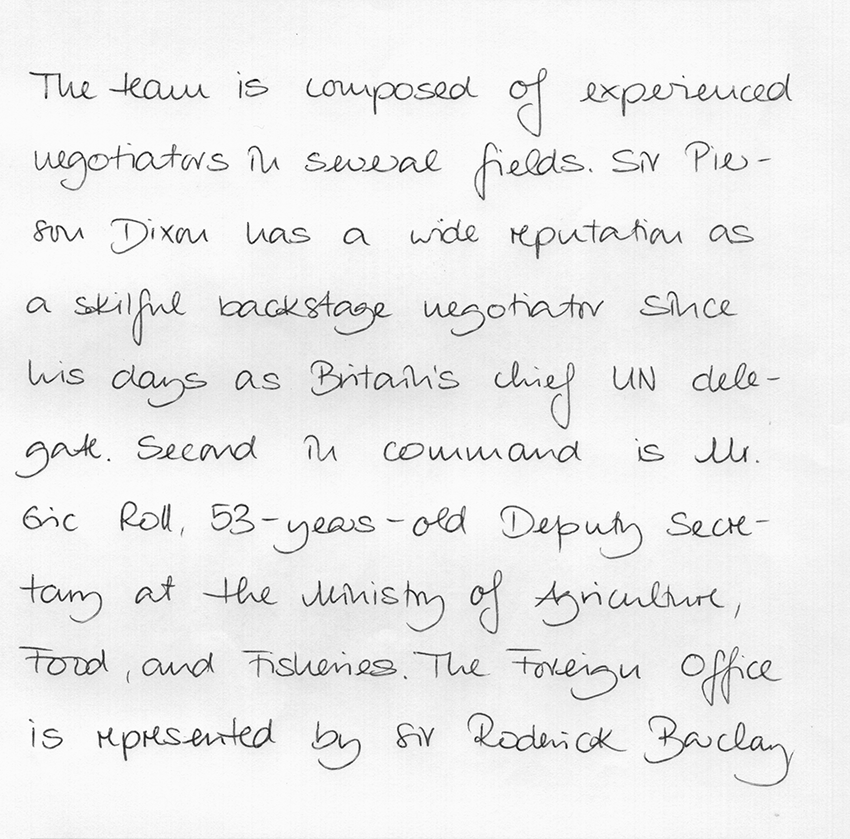 The team is composed of experienced
negotiators in several fields. Sir Pier-
son Dixon has a wide reputation as
a skilful backstage negotiator since
his days as Britain's chief UN dele-
gate. Second in command is Mr.
Eric Roll, 53-years-old Deputy Secre-
tary at the Ministry of Agriculture,
Food, and Fisheries. The Foreign Office
is represented by Sir Roderick Barclay